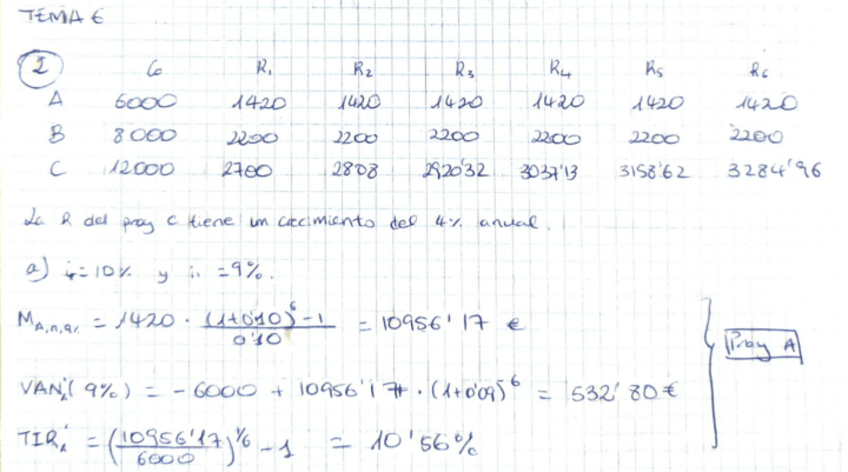 TEMA 6
2 Co R₁ R₂ R₃ R₄ R₅ R₆
A 6000 1420 1420 1420 1420 1420 1420
B 8000 2200 2200 2200 2200 2200 2200
C 12000 2700 2808 2920'32 3037'13 3158'62 3284'96
La R del proy C tiene un crecimiento del 4% anual.
a) i=10% y i. =9%.
M A,n,q. = 1420 · (1+0'10)⁶-1 / 0'10 = 10956'17 €
VAN'A (9%) = -6000 + 10956'17 · (1+0'09)⁶ = 532'80 €
Proy A
TIR'A = (10956'17 / 6000)^1/6 - 1 = 10'56%